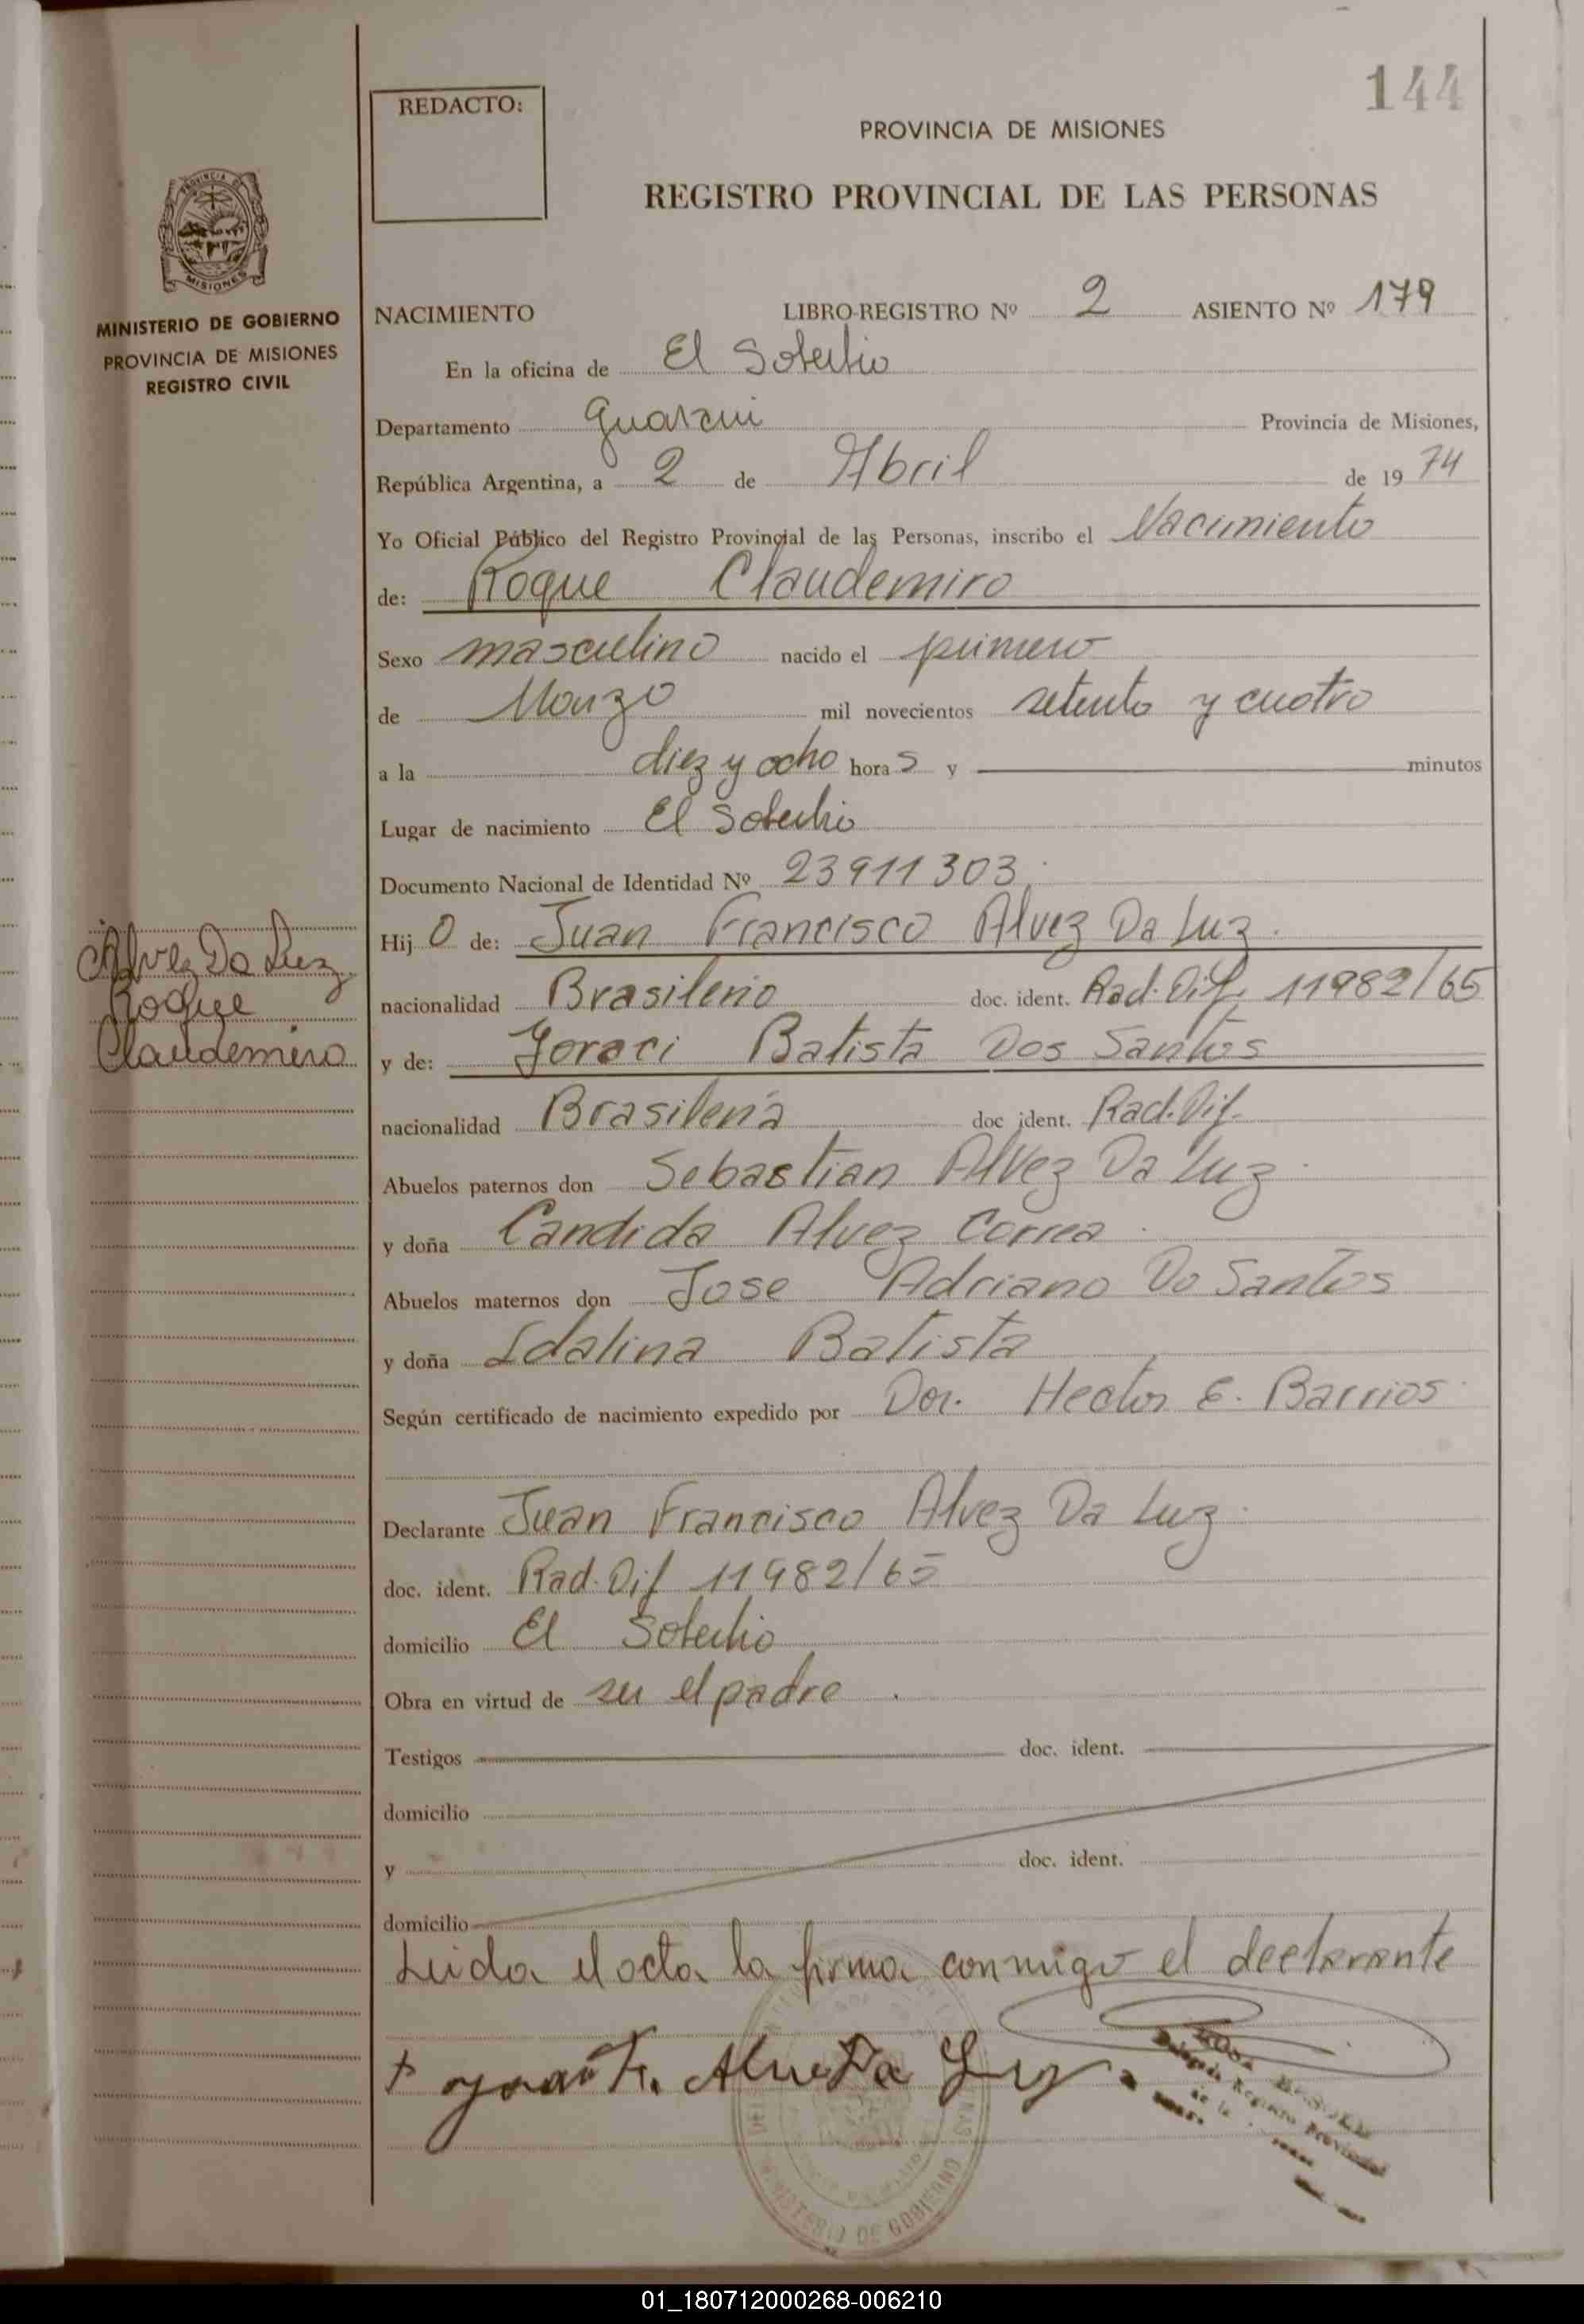 144
REDACTO:
PROVINCIA DE MISIONES
REGISTRO PROVINCIAL DE LAS PERSONAS
PROVINCIA DE
MISIONES
MINISTERIO DE GOBIERNO
PROVINCIA DE MISIONES
REGISTRO CIVIL
NACIMIENTO LIBRO-REGISTRO Nº 2 ASIENTO Nº 179
En la oficina de El Soberbio
Departamento Guarani Provincia de Misiones,
República Argentina, a 2 de Abril de 1974
Yo Oficial Público del Registro Provincial de las Personas, inscribo el Nacimiento
de: Roque Claudemiro
Sexo masculino nacido el primero
de Marzo mil novecientos setenta y cuatro
a la diez y ocho horas y minutos
Lugar de nacimiento El Soberbio
Documento Nacional de Identidad Nº 23911303
Hijo de: Juan Francisco Alvez Da Luz.
nacionalidad Brasileño doc. ident. Rad. Dif. 11982/65
y de: Joraci Batista Dos Santos
nacionalidad Brasileña doc ident. Rad. Dif.
Abuelos paternos don Sebastian Alvez Da Luz.
y doña Candida Alvez Correa.
Abuelos maternos don Jose Adriano Do Santos
y doña Idalina Batista
Según certificado de nacimiento expedido por Dor. Hector E. Barrios
Declarante Juan Francisco Alvez Da Luz.
doc. ident. Rad. Dif 11982/65
domicilio El Soberbio
Obra en virtud de ser el padre.
Testigos doc. ident.
domicilio
y doc. ident.
domicilio
Leida el acta la firma conmigo el declarante
Alvez Da Luz
Roque
Claudemiro
Delegada Registro Provincial
de la
MINISTERIO DE GOBIERNO
01_180712000268-006210